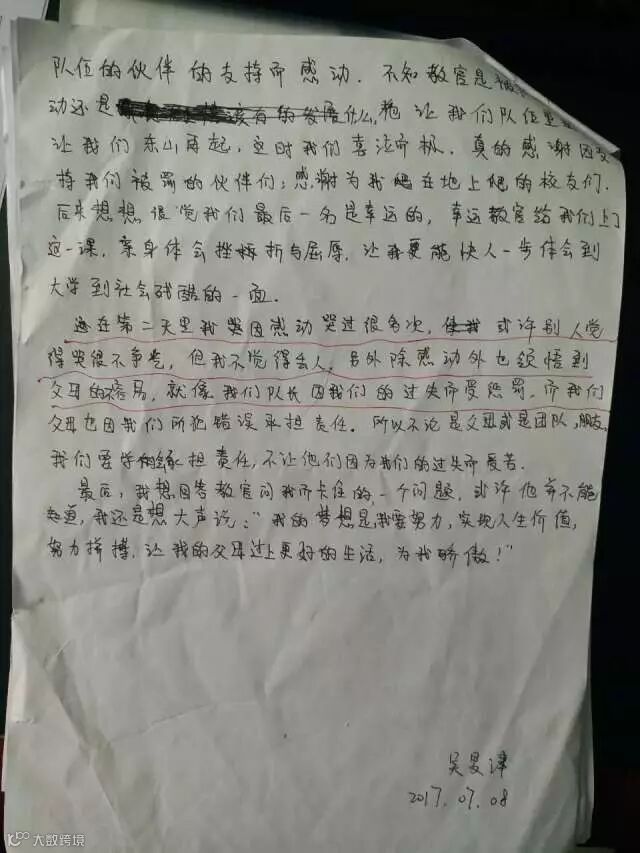 队伍的伙伴的支持而感动. 不知教官是被
动还是 该有的发展什么, 他让我们队伍
让我们东山再起, 这时我们喜泣而极. 真的感谢因支
持我们被罚的伙伴们; 感谢为我爬在地上爬的校友们.
后来想想, 倒觉我们最后一名是幸运的, 幸运教官给我们上了
这一课. 亲身体会挫折与屈辱, 让我更能快人一步体会到
大学到社会残酷的一面.
还在第二天里我哭因感动哭过很多次, 或许别人觉
得哭很不争光, 但我不觉得丢人. 另外除感动外也领悟到
父母的不易, 就像我们队长因我们的过失而受惩罚. 而我们
父母也因我们所犯错误承担责任. 所以不论是父母或是团队,朋友,
我们要学 承担责任, 不让他们因为我们的过失而受苦.
最后, 我想回答教官问我而卡住的一个问题, 或许他并不能
知道, 我还是想大声说: "我的梦想是,我要努力,实现人生价值,
努力拼搏. 让我的父母过上更好的生活, 为我骄傲!"
吴 
2017.07.08
大数跨境